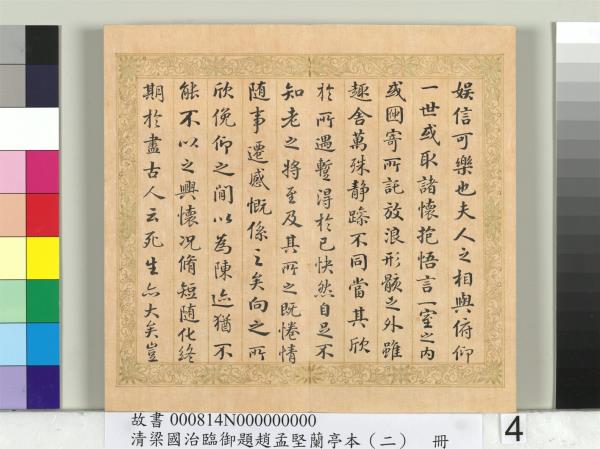 娛信可樂也夫人之相與俯仰
一世或取諸懷抱悟言一室之内
或因寄所託放浪形骸之外雖
趣舍萬殊静躁不同當其欣
於所遇蹔得於己快然自足不
知老之将至及其所之既惓情
随事遷感慨係之矣向之所
欣俛仰之閒以為陳迹猶不
能不以之興懷况脩短随化終
期於盡古人云死生亦大矣豈
故書 000814N000000000
清梁國治臨御題趙孟堅蘭亭本（二） 冊
4